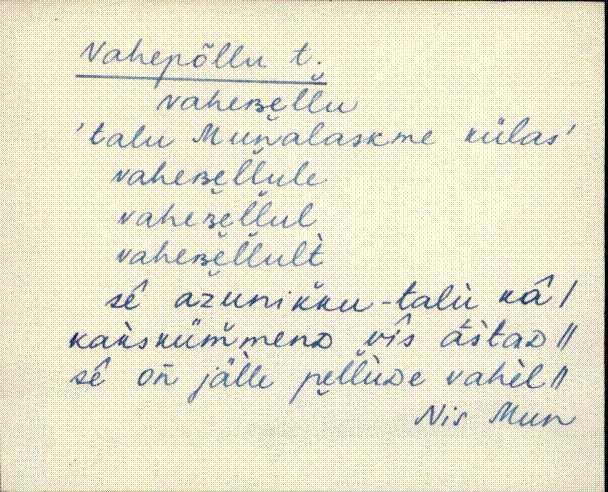 Vahepõllu t.
vaheʙe̮l̆lu
'talu Munalaskme külas'
vaheʙe̮l̆lule
vaheʙe̮l̆lul
vaheʙe̮l̆lul̀t
sê azunikku-talù kâ/
kak̀sküm̆menᴅ vîs áštaᴅ //
sê oñ jälle pe̮l̆lùᴅe vahèl //
Nis Mun